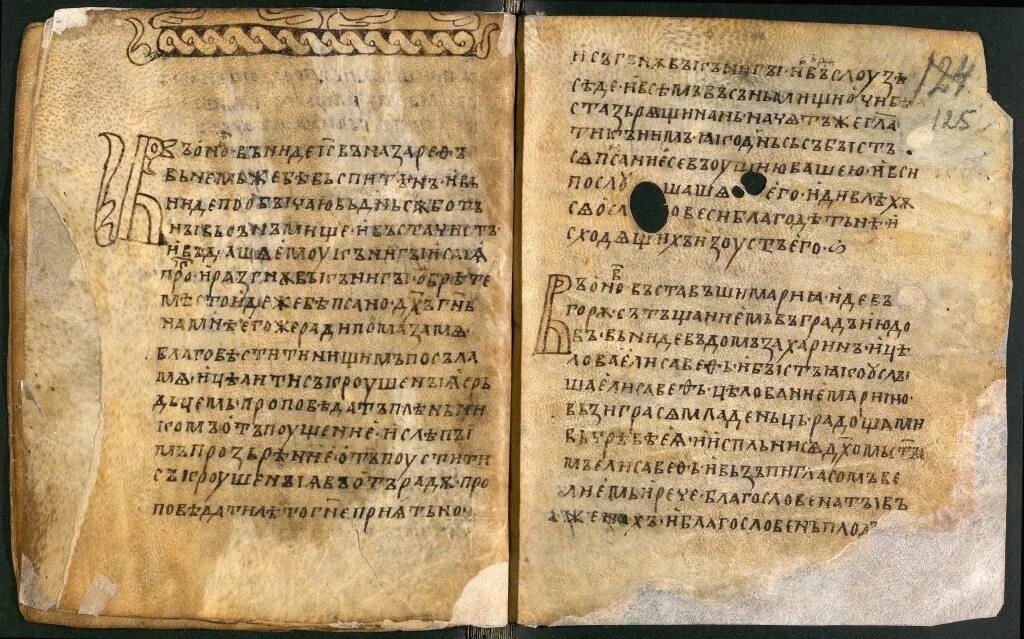 Въ оно· въниде іс҃ въ назарефъ
вь немьже бѣ въспитѣнъ· и вь
ниде по обычаю въ дьнь сѫботъ
ны вь сънъмище· и въста чистъ·
и въдашѧ емоу кънигы исаиѧ
про· и разгнѫвы кънигы· обрѣте
мѣсто идеже бѣ псано· дх҃ъ гн҃ь
на мнѣ егоже ради помаза мѧ
благовѣстити нищимъ посъла
мѧ· ицѣлити съкроушеныѧ срь
дьцемь· проповѣдатъ плѣньни
комъ отъпоущение· и слѣпы
мъ прозьрѣние· отъпоустити
съкроушеныѧ въ отърадѫ· про
повѣдати лѣто гн҃е приѧтьно·
124
125
и съгънѫвы кънигы· и въ слоузѣ
сѣде· и всѣмъ въ съньмищи очи бѣ
ста зьрѧщи на нь· начѧтъ же гл҃а
ти къ нимъ· ѣко дьньсь събыстъ
сѧ псание се въ оушию вашею· и вси
послоу шашѧ его· и дивлѣхѫ
сѧ о словеси благодѣтьнѣ· и
сходѧщихъ из оустъ его·
Въ оно въставъши мариѣ· иде въ
горѫ· съ тъщаниемь въ градъ июдо
въ· вьниде въ домъ захаринъ· и цѣ
лова елисавефь· и быстъ ѣко услы
ша елисавефъ· цѣлование мариино·
възиграсѧ младеньць радощами
вь чрѣвѣ еѧ· и испльнисѧ дх҃омь ст҃ы
мъ елисавефь· и възъпи гласомъ ве
лиемь и рече· благословена ты въ
женахъ· и благословенъ плодъ